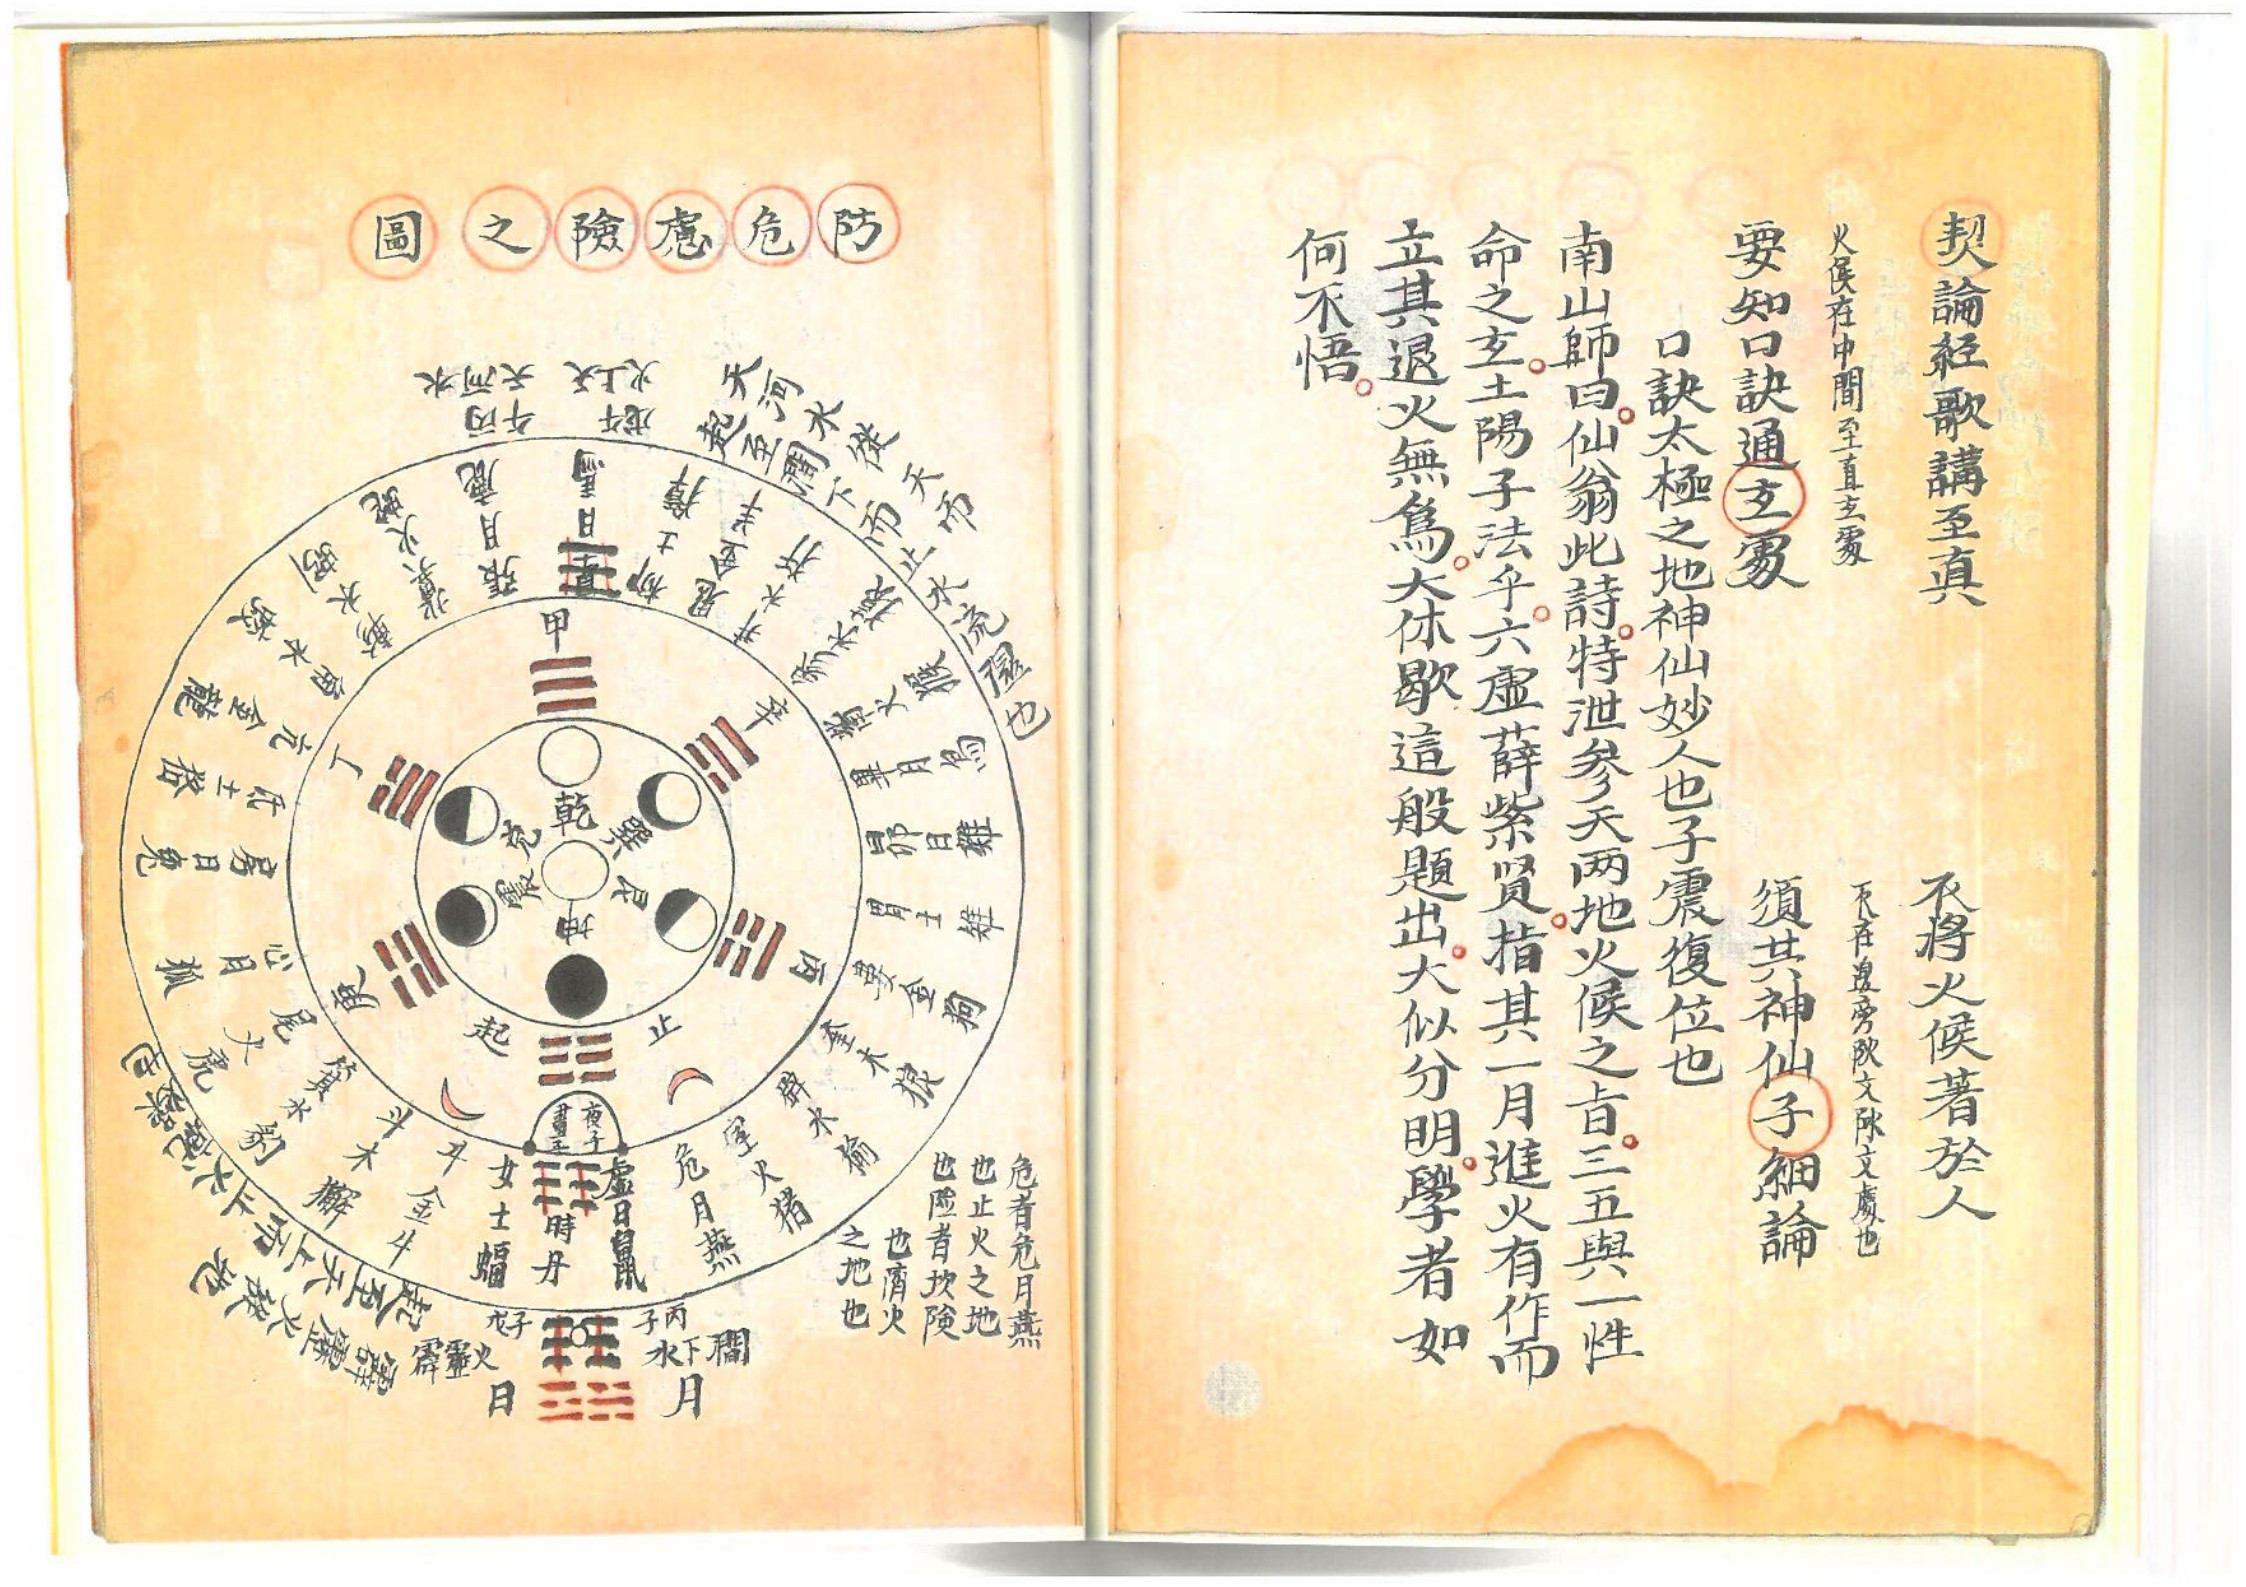 契論經歌講至真
不將火候著於人
火候在中間至直玄處
不在邊旁
要知口訣通玄處
須共神仙子細論
口訣太極之地神仙妙人也子震復位也
南山師曰仙翁此詩特泄參天两地火候之旨三五與一性
命之玄土陽子法乎六虛薛紫贤指其一月進火有作而
立其退火無為大休歇這般題出大似分明學者如
何不悟
防危慮險之圖
天河水
火上天
丙午
戊午
天河水從天而下而止水完聚也
起至澗下
星日馬
張月鹿
翼火蛇
軫水蚓
角木蛟
亢金龍
氐土貉
房日兔
心月狐
尾火虎
箕水豹
斗木獬
牛金牛
女土蝠
虛日鼠
危月燕
室火猪
壁水㺄
奎木狼
婁金狗
胃土雉
昴日雞
畢月烏
觜火猴
井木犴
鬼金羊
柳土獐
甲
辛
丙
丁
乾
巽
艮
坤
震
兌
起
止
夜子
晝子
時丹
危者危月燕
也止火之地
也險者坎険
也濟火
之地也
戊子
丙子
霹靂火
澗下水
日
月